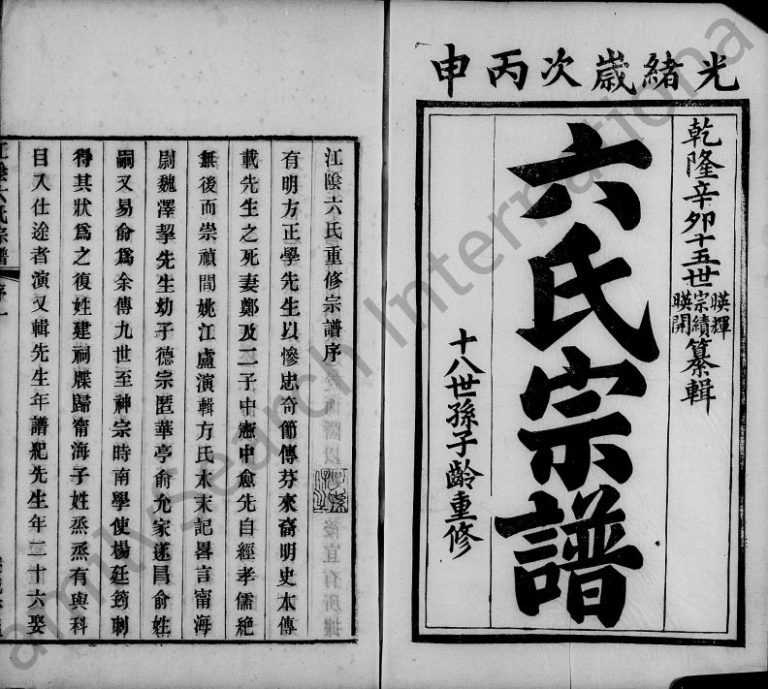 光緒歲次丙申
乾隆辛卯十五世
暎輝
宗績
暎開
纂輯
六氏宗譜
十八世孫子齡重修
江陰六氏重修宗譜序
有明方正學先生以慘忠奇節傳芬來裔明史本傳
載先生之死妻鄭及二子中憲中愈先自經孝儒絶
無後而崇禎間姚江盧演輯方氏本末記畧言甯海
尉魏澤挈先生幼子德宗匿華亭俞允家遂冒俞姓
嗣又易俞爲余傳九世至神宗時南學使楊廷筠剌
得其狀爲之復姓建祠牒歸甯海子姓烝烝有與科
目入仕途者演又輯先生年譜紀先生年二十六娶
江陰六氏宗譜 序 一
FamilySearch International